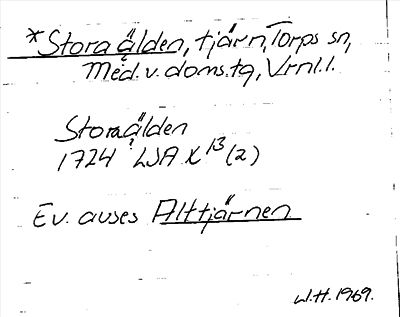 *Stora älden, tjärn, Torps sn,
Med. v. doms. tg, Vrnl. l.
Stora älden
1724 LSA X 13 (2)
Ev. avses Alttjärnen
W.H. 1969.